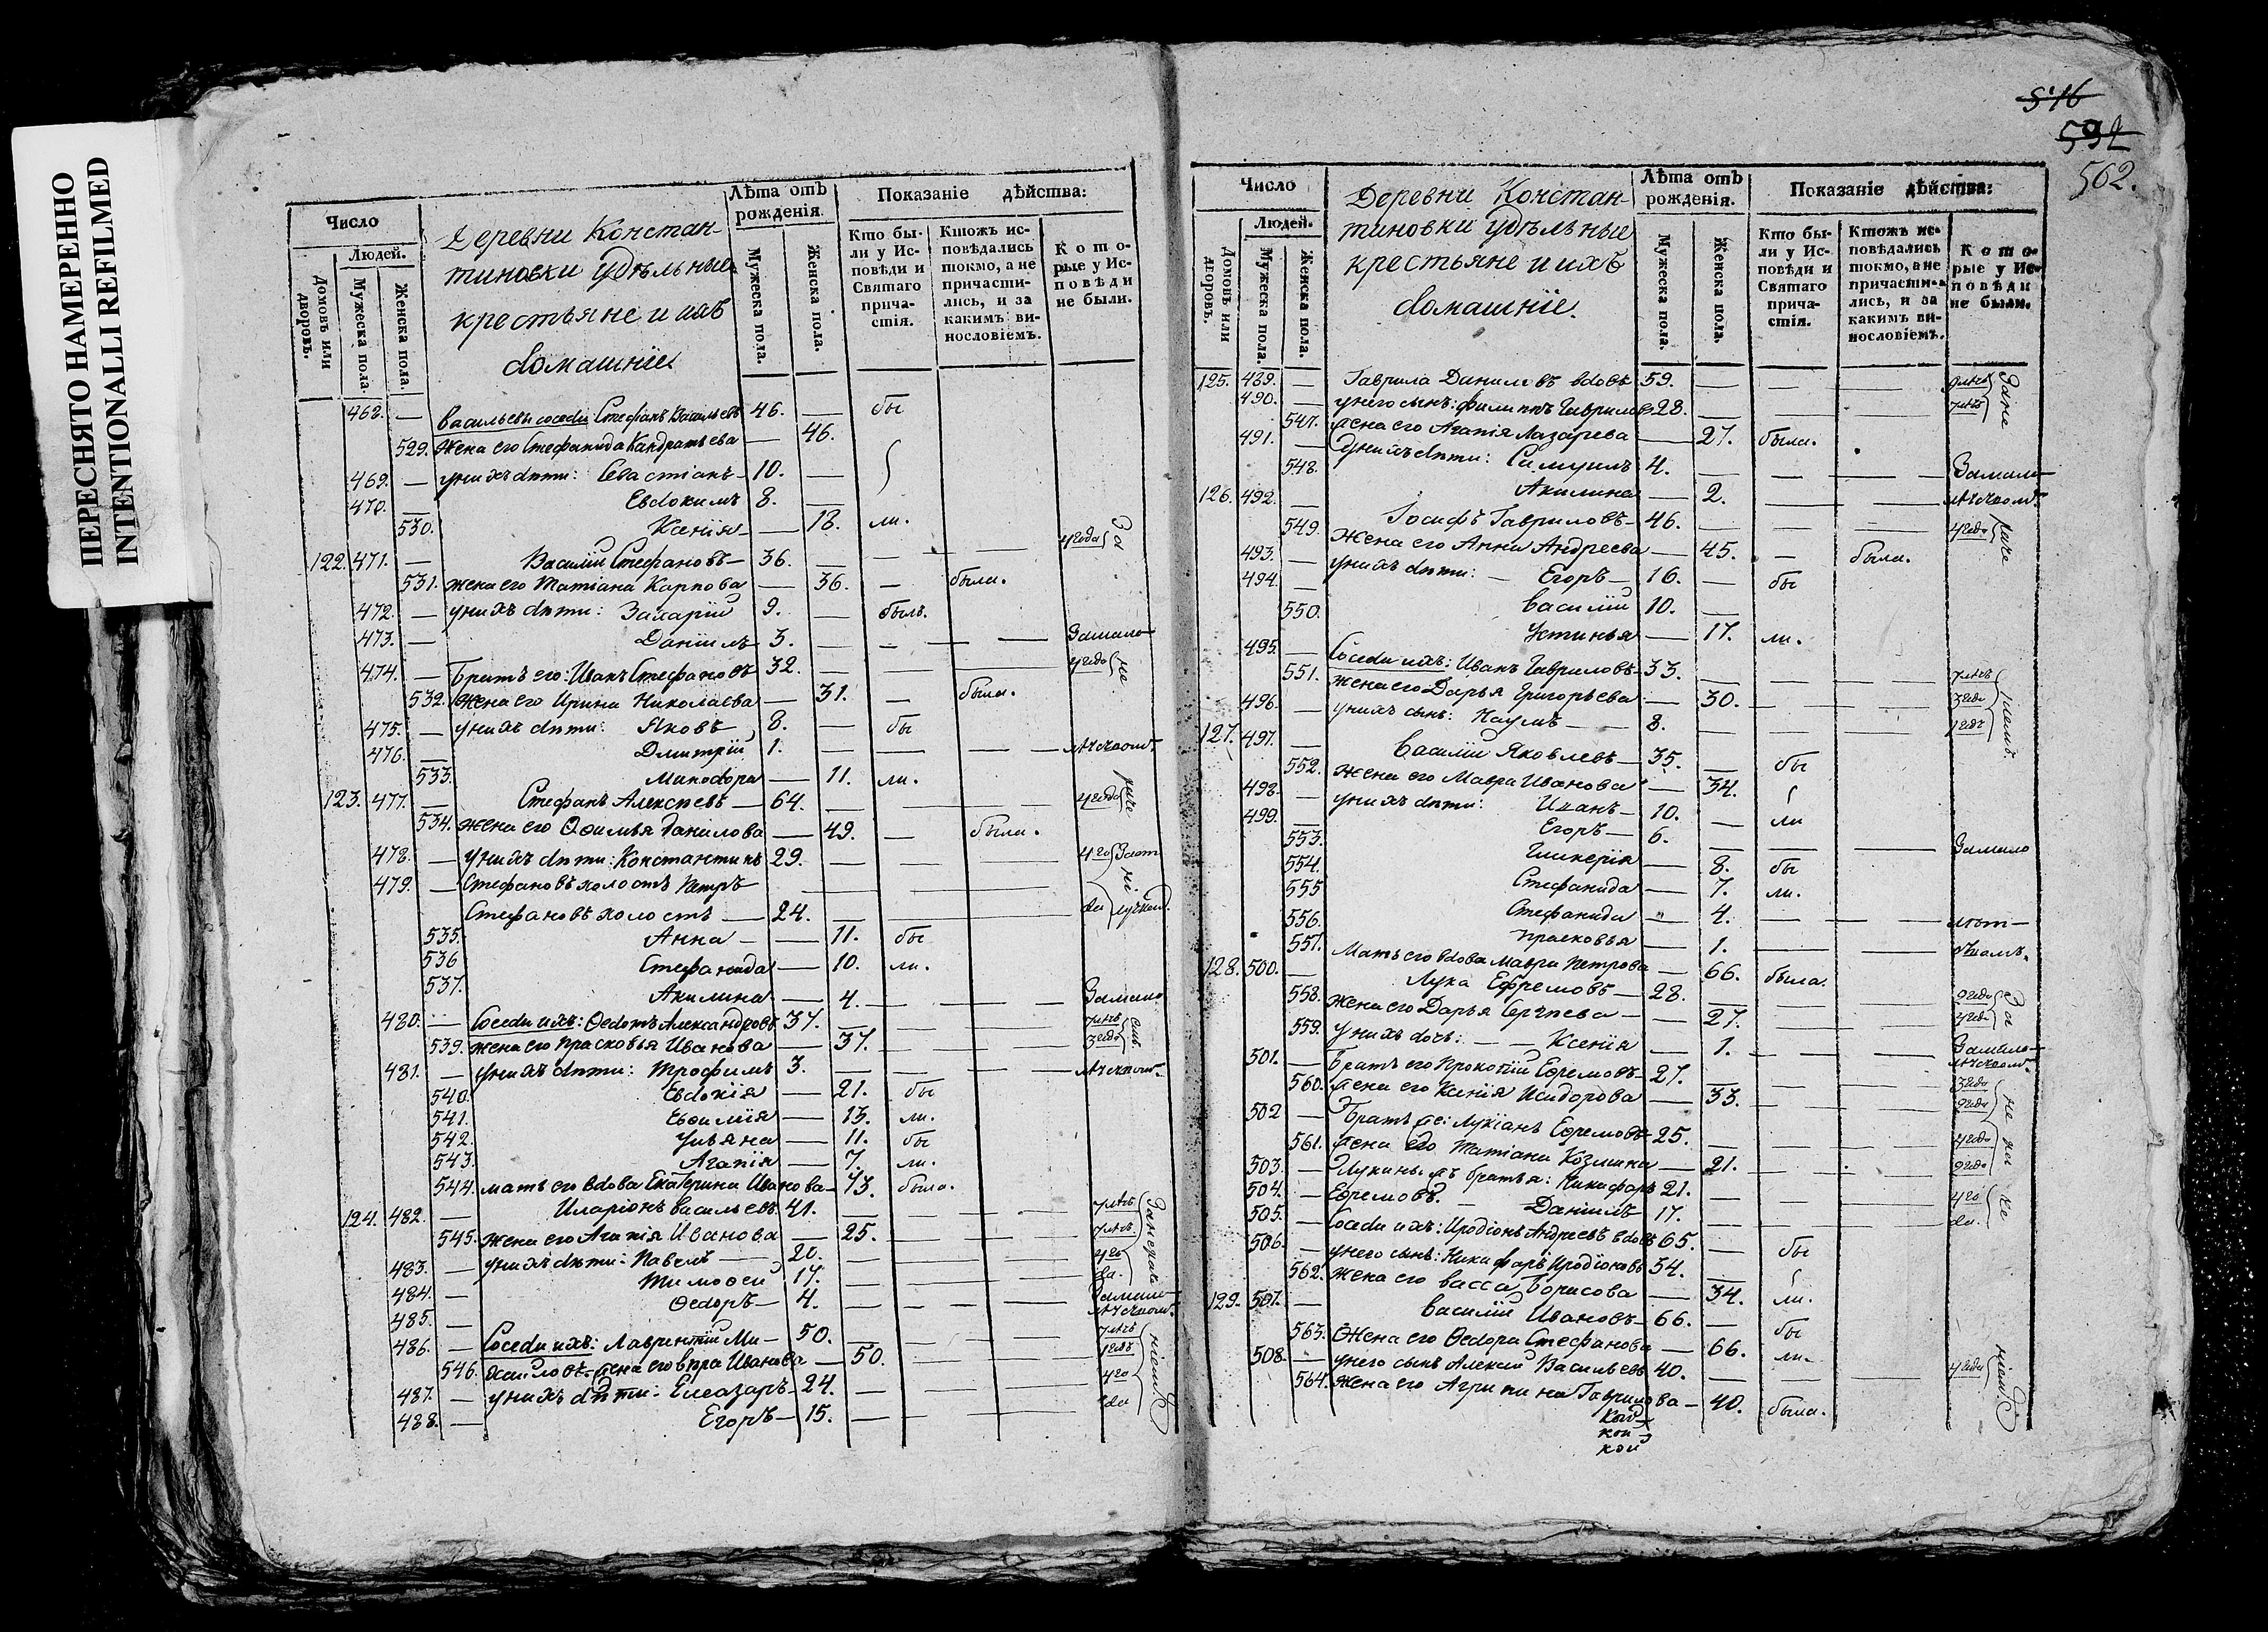 ПЕРЕСНЯТО НАМЕРЕННО
INTENTIONALLI REFILMED
Число
Людей.
Домовъ или дворовъ.
Мужеска пола.
Женска пола.
Деревни Констан-
тиновки удѣльные
крестьяне и ихъ
домашніи
Лѣта отъ рожденія.
Мужеска пола.
Женска пола.
Показаніе дѣйства:
Кто бы-
ли у Ис-
повѣди и
Святаго
прича-
стія.
Ктожъ ис-
повѣдались
токмо, а не
причасти-
лись, и за
какимъ ви-
нословіемъ.
Кото-
рые у Ис-
повѣди
не были.
468. — Васильевы соседи Стефанъ Васильевъ 46. — бы
529. Жена его Стефанида Кандратьева — 46.
469. — у нихъ дѣти: Севастіанъ — 10. —
470. — Евдокимъ 8. —
530. Ксенія — 18. ли.
122. 471. — Василій Стефановъ — 36. — — — 4 года За
531. жена его Татіана Карпова — 36. — была.
472. — у нихъ дѣти: Захарій 9. — былъ.
473. — Даніилъ 3. — — — Замало
474. — Братъ его: Иванъ Стефановъ 32. — — — 4 годо не
532. Жена его Ирина Николаева — 31. — была.
475. — у нихъ дѣти: Яковъ 8. — бы
476. — Дмитрій 1. — — — лѣтством.
533. Минодора — 11. ли.
123. 477. — Стефанъ Алексѣевъ — 64. — — — 4 годо
534. жена его Ѳѳимья Данилова — 49. — была.
478. — у нихъ дѣти: Константинъ 29. — — — 4 го Заот
479. — Стефановъ холостъ Петръ — — —
Стефановъ холостъ — 24. — — да лучкой
535. Анна — — 11. бы
536 Стефанида — 10. ли.
537. Акилина — 4. — — — Замало
480. — Соседи ихъ: Ѳедотъ Александровъ 37. — — — 7 лѣтъ
539. жена его Прасковья Иванова — 37. — — — 3 годо
481. — у нихъ дѣти: Трофимъ 3. — — — лѣтством.
540. Евдокія — 21. бы
541. Евѳимія — 13. ли.
542. Ульяна — 11. бы
543. Агапія — 7. ли.
544. мать его вдова Екатерина Иванова — 73. была.
124. 482. — Иларіонъ Васильевъ 41. — — — 7 лѣтъ
545. жена его Агапія Иванова — 25. — — — 7 лѣтъ
483. — у нихъ дѣти: Павелъ — 20. — — — 4 го
484. — Тимоѳей 17. — — — да.
485. — Ѳедоръ — 4. — — — Замало лѣтством.
486. — Соседи ихъ: Лаврентій Ми- 50. — — — 7 лѣтъ
546. хайловъ жена его Вѣра Иванова — 50. — — 1 годъ
487. — у нихъ дѣти: Елеазаръ — 24. — — — 4 го
488. — Егоръ — 15. — — — да
516
592
562.
Число
Людей.
Домовъ или дворовъ.
Мужеска пола.
Женска пола.
Деревни Констан-
тиновки удѣльные
крестьяне и ихъ
домашніе.
Лѣта отъ рожденія.
Мужеска пола.
Женска пола.
Показаніе дѣйства:
Кто бы-
ли у Ис-
повѣди и
Святаго
прича-
стія.
Ктожъ ис-
повѣдались
токмо, а не
причасти-
лись, и за
какимъ ви-
нословіемъ.
Кото-
рые у Ис-
повѣди
не были.
125. 489. — Гаврила Даниловъ вдовъ 59. — — — 9 лѣтъ
490. — у него сынъ: Филипъ Гавриловъ 28. — — — 7 лѣтъ
547. жена его Агапія Лазарева — 27. была.
491. — у нихъ дѣти: Самуилъ 4. — — — Замало
548. Акилина — 2. — — лѣтством.
126. 492. — Іосифъ Гавриловъ — 46. — — — 4 годо
549. Жена его Анна Андреева — 45. — была.
493. — у нихъ дѣти: — Егоръ — 16. — бы
494. — Василій 10. —
550. Устинья — 17. ли.
495. — Соседи ихъ: Иванъ Гавриловъ — 33. — — — 7 лѣтъ
551. жена его Дарья Григорьева — 30. — — — 3 годо
496. — у нихъ сынъ: Наумъ — 8. — — — 1 годъ
127. 497. — Василій Яковлевъ — 35. — бы
552. Жена его Мавра Иванова — 34.
498. — у нихъ дѣти: Иванъ — 10. — ли
499. — Егоръ — 6. — — — Замало
553. Гликерія — 8. бы
554. Стефанида — 7. ли.
555 Стефанида — 4. — — —
556. Прасковья — 1. — —
557. Мать его вдова Мавра Петрова — 66. была.
128. 500. — Лука Ефремовъ — 28. — — — 9 годо За
558. жена его Дарья Сергѣева — 27. — — 4 годо
559. у нихъ дочь: — — Ксенія — 1. — — — Замало лѣтством.
501. — Братъ его Прокопій Ефремовъ — 27. — — — 3 годо
560. жена его Ксенія Исидорова — 33. — — — 9 годо
502 — Братъ его: Лукіанъ Ефремовъ 25. — — — 4 годо
561. жена его Татіана Козмина — 21. — — — 9 годо
503. — Лукины ѣ братья: Никифоръ 21. — — — 4 го
504. — Ефремовъ. — Даніилъ — 17. — — — да.
505. — Соседи ихъ: Иродіонъ Андреевъ вдовъ 65. — бы
506. — у него сынъ: Никифоръ Иродіоновъ 34. —
562. Жена его Васса Борисова — 34. ли.
129. 507. — Василій Ивановъ — 66. — бы
563. Жена его Ѳедора Стефанова — 66. ли.
508. — у него сынъ Алексій Васильевъ 40. — — — 4 годо
564. Жена его Агрипина Гаврилова — 40. была.